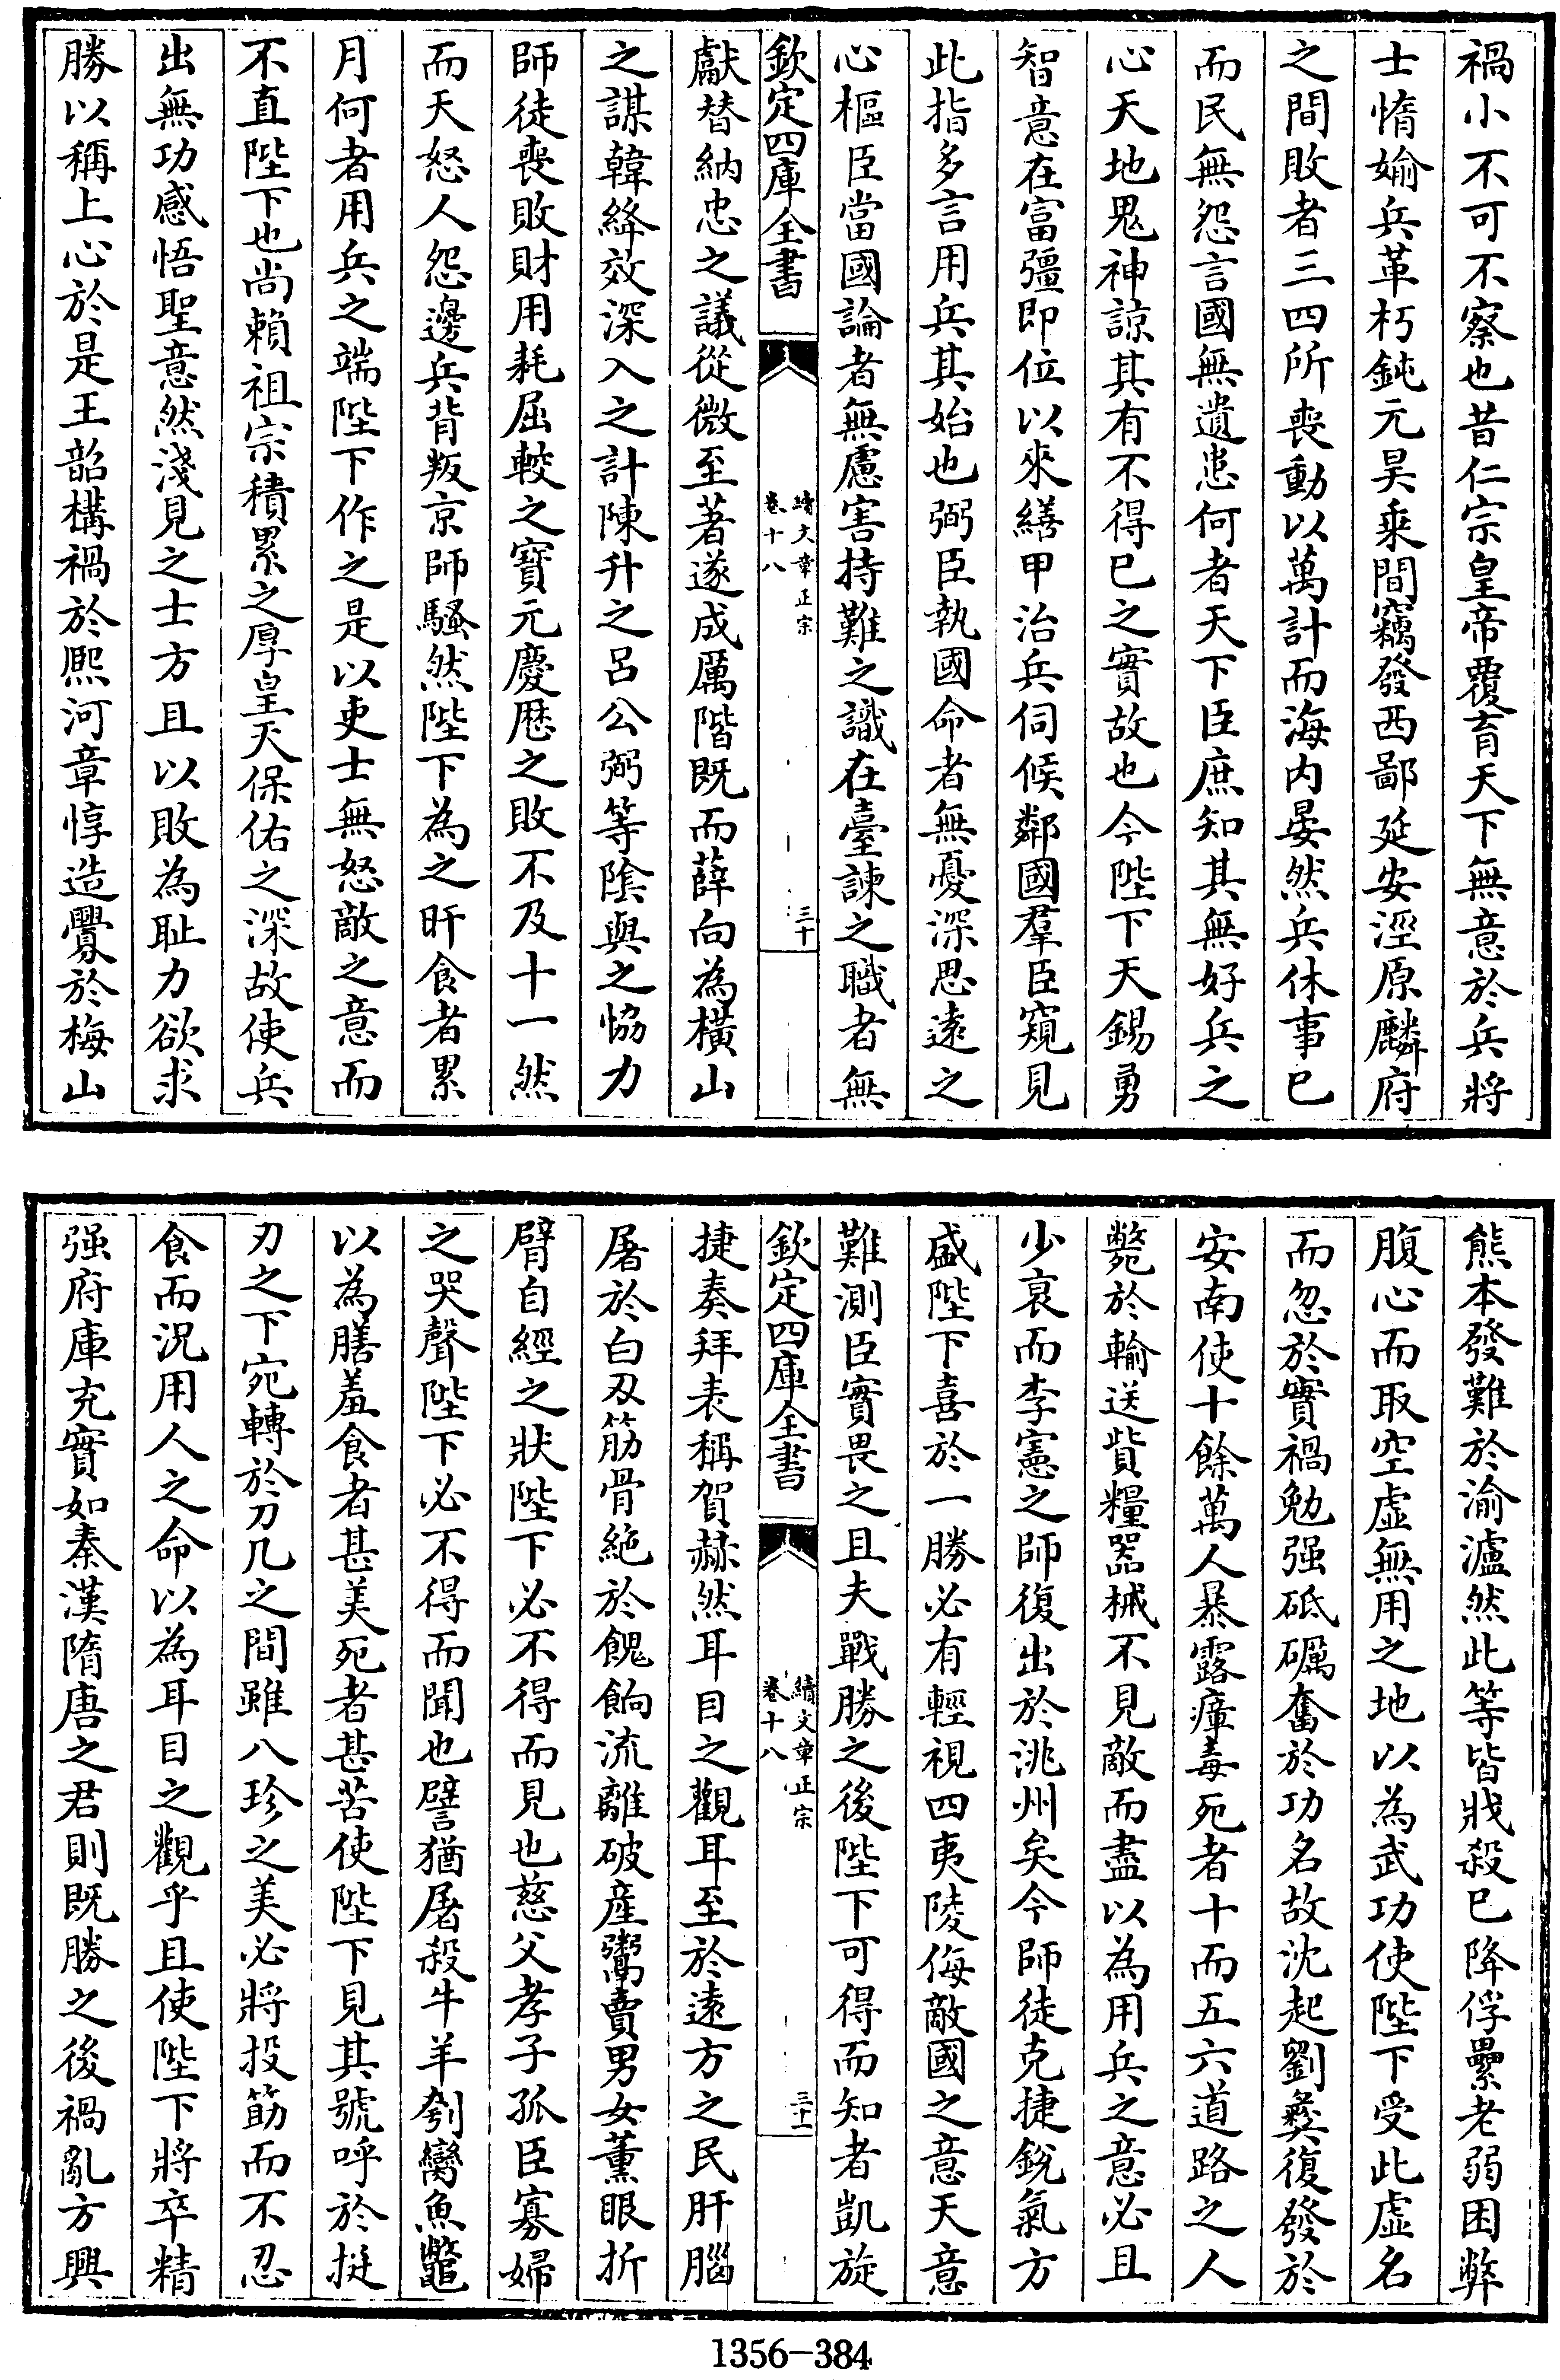 禍小不可不察也昔仁宗皇帝覆育天下無意於兵將
士惰媮兵革朽鈍元昊乘間竊發西鄙延安涇原麟府
之間敗者三四所喪動以萬計而海内晏然兵休事已
而民無怨言國無遺患何者天下臣庶知其無好兵之
心天地鬼神諒其有不得已之實故也今陛下天錫勇
智意在富彊即位以來繕甲治兵伺候鄰國羣臣窺見
此指多言用兵其始也弼臣執國命者無憂深思遠之
心樞臣當國論者無慮害持難之識在臺諫之職者無
欽定四庫全書
續文章正宗
卷十八
三十
獻替納忠之議從微至著遂成厲階既而薛向為横山
之謀韓絳效深入之計陳升之吕公弼等陰與之恊力
師徒喪敗財用耗屈較之寶元慶厯之敗不及十一然
而天怒人怨邊兵背叛京師騷然陛下為之旰食者累
月何者用兵之端陛下作之是以吏士無怒敵之意而
不直陛下也尚賴祖宗積累之厚皇天保佑之深故使兵
出無功感悟聖意然淺見之士方且以敗為耻力欲求
勝以稱上心於是王韶構禍於熈河章惇造釁於梅山
熊本發難於渝瀘然此等皆戕殺已降俘纍老弱困弊
腹心而取空虚無用之地以為武功使陛下受此虚名
而忽於實禍勉强砥礪奮於功名故沈起劉彜復發於
安南使十餘萬人暴露瘴毒死者十而五六道路之人
斃於輸送貲糧器械不見敵而盡以為用兵之意必且
少衰而李憲之師復出於洮州矣今師徒克捷鋭氣方
盛陛下喜於一勝必有輕視四夷陵侮敵國之意天意
難測臣實畏之且夫戰勝之後陛下可得而知者凱旋
欽定四庫全書
續文章正宗
卷十八
三十一
捷奏拜表稱賀赫然耳目之觀耳至於遠方之民肝腦
屠於白刃筋骨絶於餽餉流離破産鬻賣男女薫眼折
臂自經之狀陛下必不得而見也慈父孝子孤臣寡婦
之哭聲陛下必不得而聞也譬猶屠殺牛羊刳臠魚鼈
以為膳羞食者甚美死者甚苦使陛下見其號呼於挺
刃之下宛轉於刀几之間雖八珍之美必將投筯而不忍
食而況用人之命以為耳目之觀乎且使陛下將卒精
强府庫充實如秦漢隋唐之君則既勝之後禍亂方興
1356-384